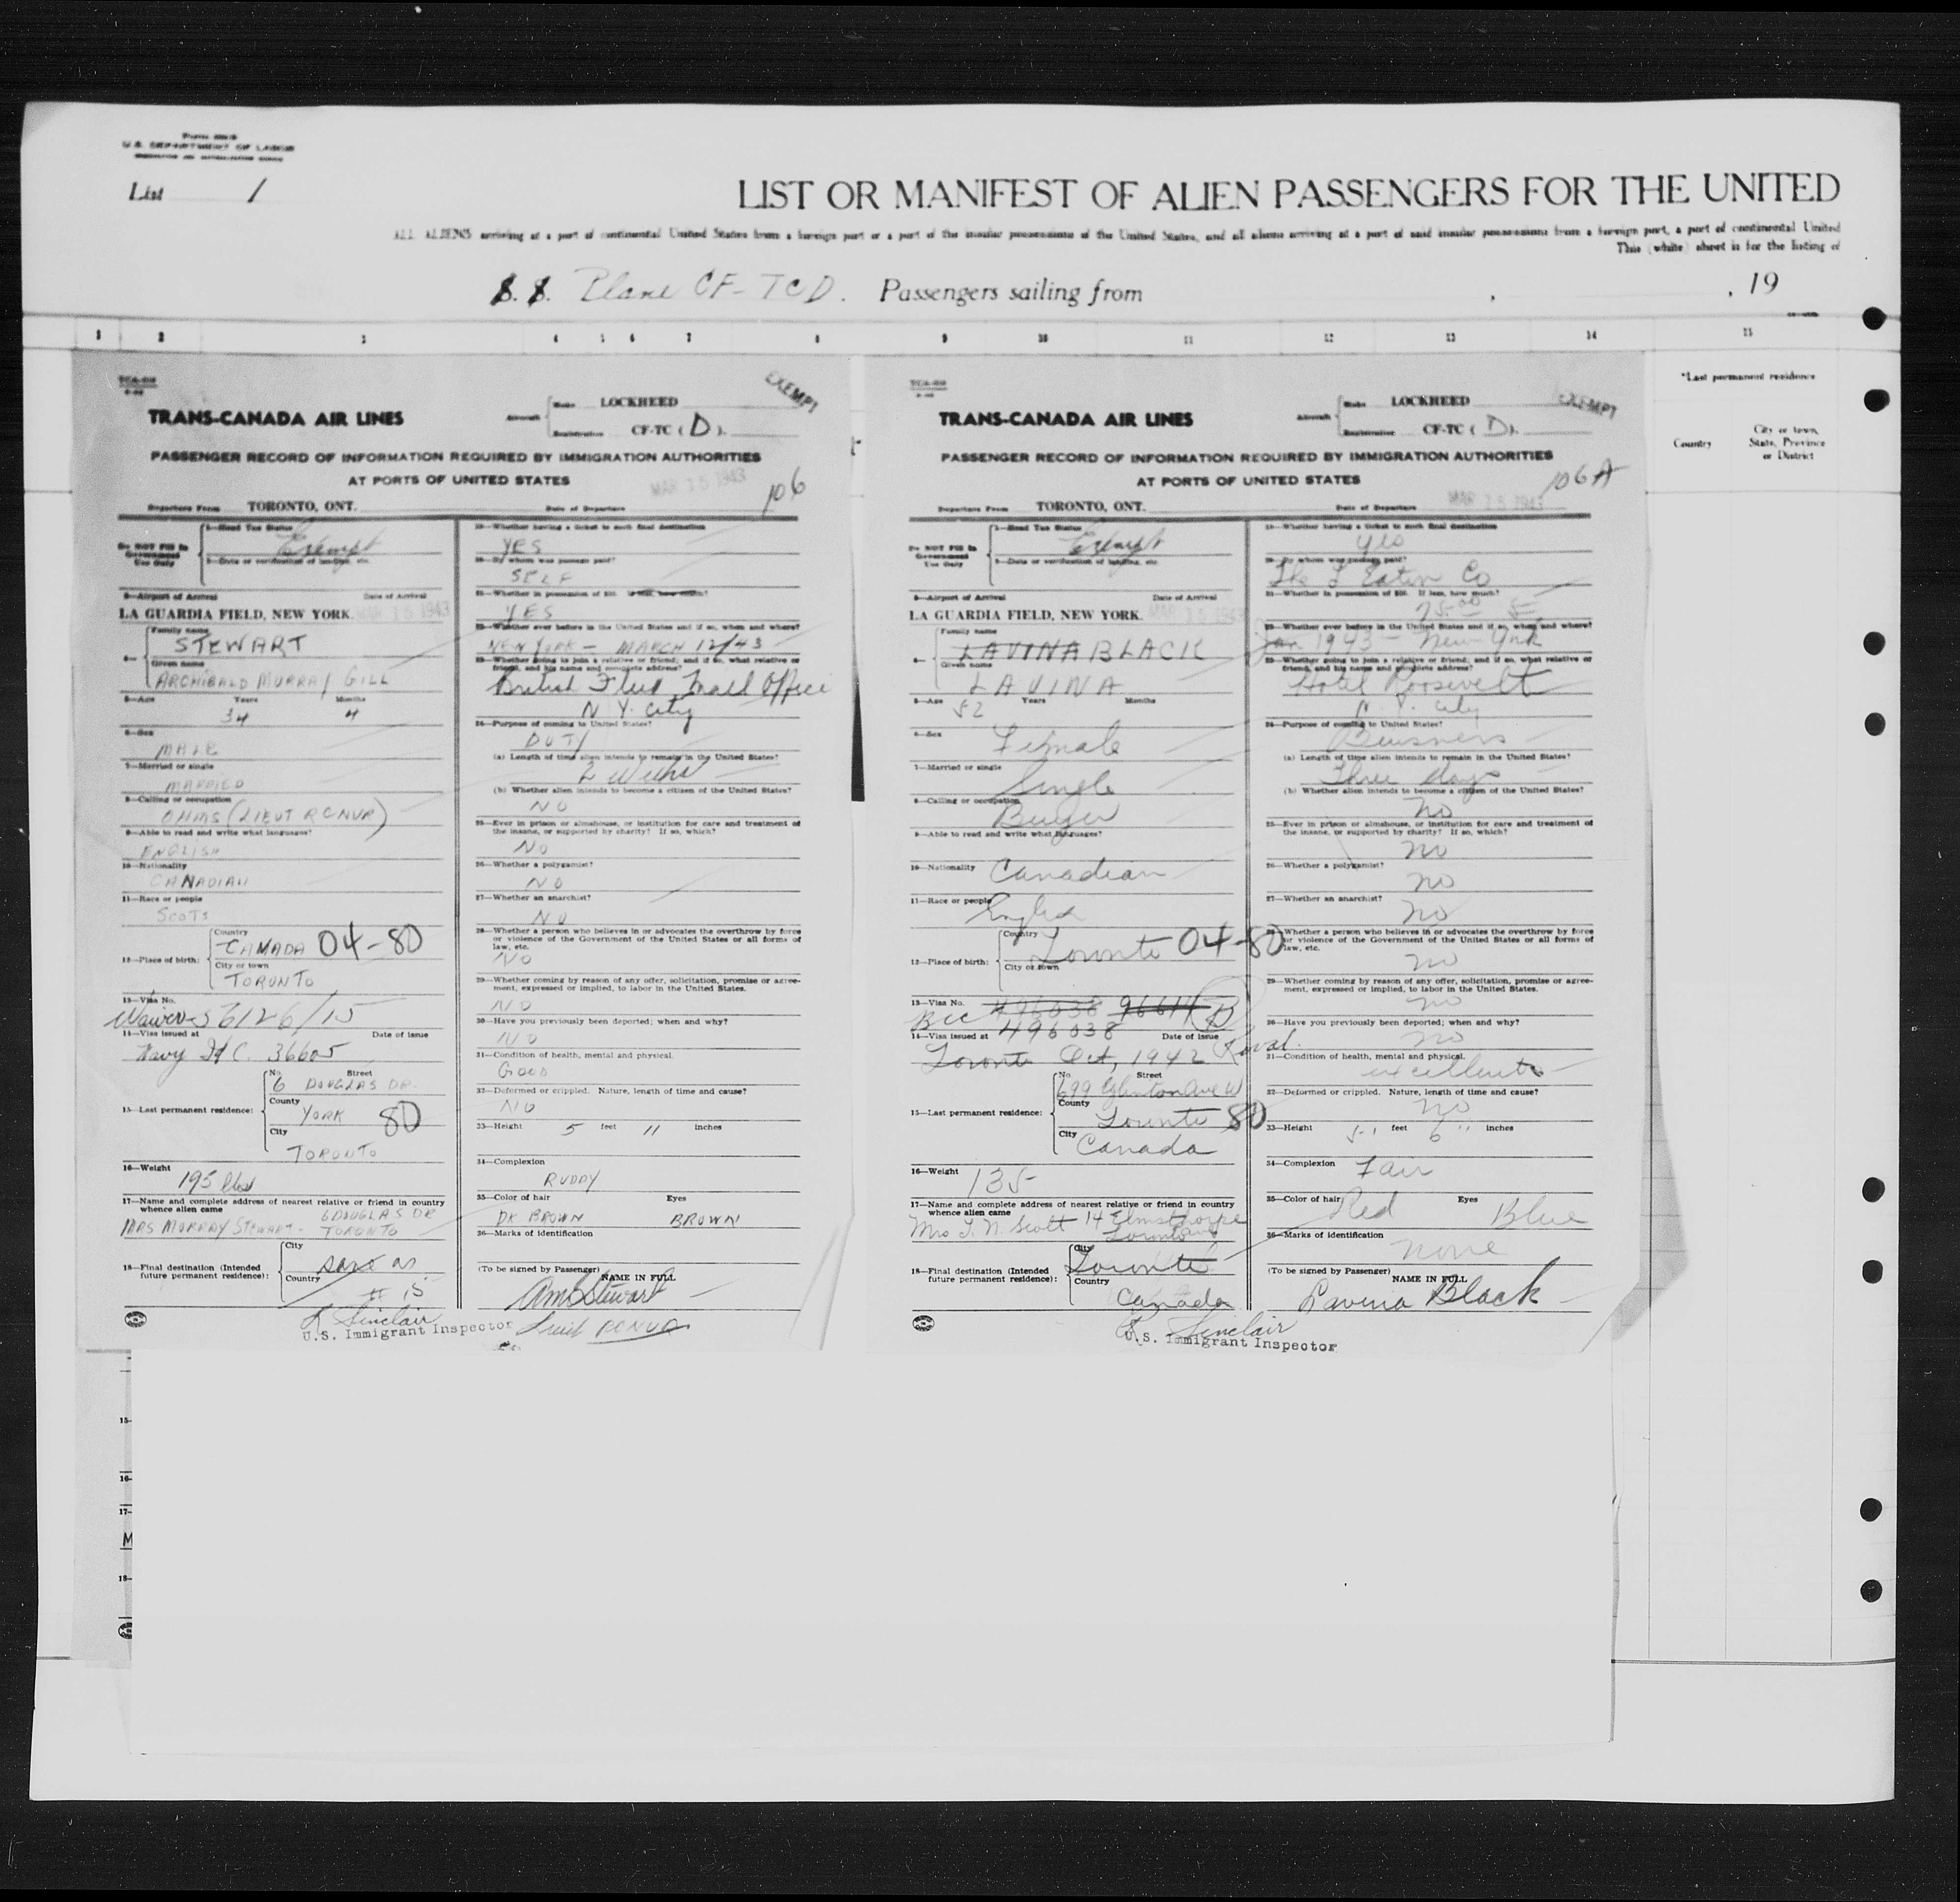 U.S. DEPARTMENT OF LABOR
List 1
LIST OR MANIFEST OF ALIEN PASSENGERS FOR THE UNITED
ALL ALIENS arriving at a port of continental United States from a foreign port or a port of the insular possessions of the United States, and all aliens arriving at a port of said insular possessions from a foreign port, a port of continental United
This (white) sheet is for the listing of
S. S. Plane CF-TCD. Passengers sailing from , , 19
1 2 3 4 5 6 7 8 9 10 11 12 13 14 15
*Last permanent residence
Country
City or town, State, Province or District
EXEMPT
TRANS-CANADA AIR LINES
Aircraft
Make LOCKHEED
Registration CF-TC (D).
PASSENGER RECORD OF INFORMATION REQUIRED BY IMMIGRATION AUTHORITIES
AT PORTS OF UNITED STATES
MAR 15 1943
106
Departure From TORONTO, ONT. Date of Departure
Do NOT Fill in Government Use Only
1—Head Tax Status
Exempt
2—Date or verification of landings, etc.
3—Airport of Arrival Date of Arrival
LA GUARDIA FIELD, NEW YORK. MAR 15 1943
4— Family name
STEWART
Given name
ARCHIBALD MURRAY GILL
5—Age Years Months
34 4
6—Sex
MALE
7—Married or single
MARRIED
8—Calling or occupation
OHMS (LIEUT RCNVR)
9—Able to read and write what languages?
ENGLISH
10—Nationality
CANADIAN
11—Race or people
SCOTS
12—Place of birth:
Country
CANADA 04-80
City or town
TORONTO
13—Visa No.
Waiver 56126/15
14—Visa issued at Date of issue
Navy Id C. 36605
15—Last permanent residence:
No. Street
6 DOUGLAS DR.
County
YORK 80
City
TORONTO
16—Weight
195 lbs
17—Name and complete address of nearest relative or friend in country whence alien came
6 DOUGLAS DR
MRS MURRAY STEWART - TORONTO
18—Final destination (Intended future permanent residence):
City
same as
Country
# 15
Sinclair
U.S. Immigrant Inspector
19—Whether having a ticket to such final destination
YES
20—By whom was passage paid?
SELF
21—Whether in possession of $50. If less, how much?
YES
22—Whether ever before in the United States and if so, when and where?
NEW YORK - MARCH 12/43
23—Whether going to join a relative or friend; and if so, what relative or friend, and his name and complete address?
British Fleet Mail Office
N Y. City
24—Purpose of coming to United States?
DUTY
(a) Length of time alien intends to remain in the United States?
2 Weeks
(b) Whether alien intends to become a citizen of the United States?
NO
25—Ever in prison or almshouse, or institution for care and treatment of the insane, or supported by charity? If so, which?
NO
26—Whether a polygamist?
NO
27—Whether an anarchist?
NO
28—Whether a person who believes in or advocates the overthrow by force or violence of the Government of the United States or all forms of law, etc.
NO
29—Whether coming by reason of any offer, solicitation, promise or agreement, expressed or implied, to labor in the United States.
NO
30—Have you previously been deported; when and why?
NO
31—Condition of health, mental and physical.
GOOD
32—Deformed or crippled. Nature, length of time and cause?
NO
33—Height 5 feet 11 inches
34—Complexion
RUDDY
35—Color of hair Eyes
DK BROWN BROWN
36—Marks of identification
(To be signed by Passenger)
NAME IN FULL
AMG Stewart
Lieut RCNVR
EXEMPT
TRANS-CANADA AIR LINES
Aircraft
Make LOCKHEED
Registration CF-TC (D).
PASSENGER RECORD OF INFORMATION REQUIRED BY IMMIGRATION AUTHORITIES
AT PORTS OF UNITED STATES
MAR 15 1943
106A
Departure From TORONTO, ONT. Date of Departure
Do NOT Fill in Government Use Only
1—Head Tax Status
Exempt
2—Date or verification of landing, etc.
3—Airport of Arrival Date of Arrival
LA GUARDIA FIELD, NEW YORK. MAR 15 1943
4— Family name
LAVINA BLACK
Given name
LAVINA
5—Age Years Months
52
6—Sex
Female
7—Married or single
Single
8—Calling or occupation
Buyer
9—Able to read and write what languages?
10—Nationality
Canadian
11—Race or people
12—Place of birth:
Country
Toronto 04-80
City or town
13—Visa No.
BCC 496038 96614 B
496038
14—Visa issued at Date of issue
Toronto Oct, 1942
15—Last permanent residence:
No. Street
699 Eglinton Ave W
County
Toronto 80
City
Canada
16—Weight
135
17—Name and complete address of nearest relative or friend in country whence alien came
Mrs T. N. Scott 14 Elmsthorpe
Toronto
18—Final destination (Intended future permanent residence):
City
Toronto
Country
Canada
Sinclair
U.S. Immigrant Inspector
19—Whether having a ticket to such final destination
yes
20—By whom was passage paid?
The T Eaton Co
21—Whether in possession of $50. If less, how much?
75.00
22—Whether ever before in the United States and if so, when and where?
Jan 1943 - New York
23—Whether going to join a relative or friend; and if so, what relative or friend, and his name and complete address?
Hotel Roosevelt
N. Y. City
24—Purpose of coming to United States?
Business
(a) Length of time alien intends to remain in the United States?
Three days
(b) Whether alien intends to become a citizen of the United States?
no
25—Ever in prison or almshouse, or institution for care and treatment of the insane, or supported by charity? If so, which?
no
26—Whether a polygamist?
no
27—Whether an anarchist?
no
28—Whether a person who believes in or advocates the overthrow by force or violence of the Government of the United States or all forms of law, etc.
no
29—Whether coming by reason of any offer, solicitation, promise or agreement, expressed or implied, to labor in the United States.
no
30—Have you previously been deported; when and why?
no
31—Condition of health, mental and physical.
excellent
32—Deformed or crippled. Nature, length of time and cause?
no
33—Height 5' feet 6" inches
34—Complexion Fair
35—Color of hair Eyes
Red Blue
36—Marks of identification
none
(To be signed by Passenger)
NAME IN FULL
Lavina Black
15—
16—
17—
M
18—